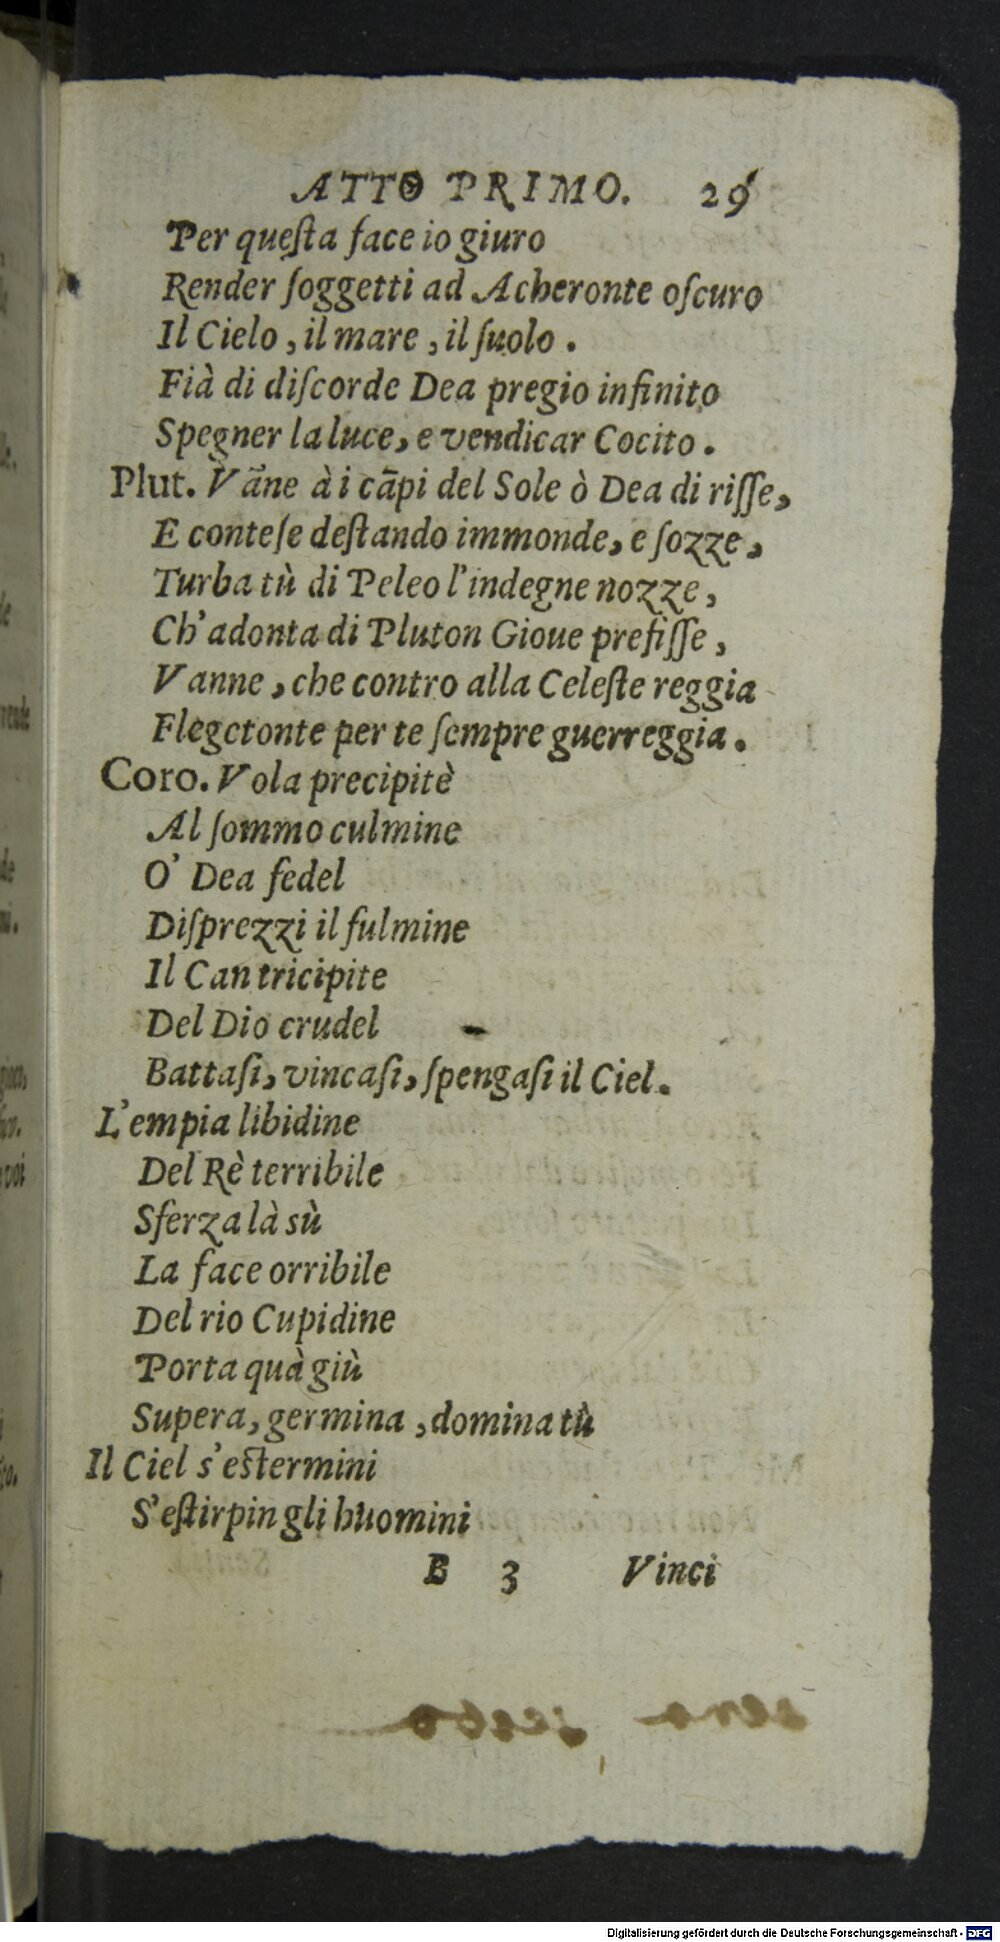 ATTO PRIMO. 29
Per queſta face io giuro
Render ſoggetti ad Acheronte oſcuro
Il Cielo, il mare, il ſuolo.
Fià di diſcorde Dea pregio infinito
Spegner la luce, e vendicar Cocito.
Plut. Vãne à i cãpi del Sole ò Dea di riſſe,
E conteſe deſtando immonde, e ſozze,
Turba tù di Peleo l'indegne nozze,
Ch'adonta di Pluton Gioue prefiſſe,
Vanne, che contro alla Celeſte reggia
Flegetonte per te ſempre guerreggia.
Coro. Vola precipitè
Al ſommo culmine
O' Dea fedel
Diſprezzi il fulmine
Il Can tricipite
Del Dio crudel
Battaſi, vincaſi, ſpengaſi il Ciel.
L'empia libidine
Del Rè terribile
Sferza là sù
La face orribile
Del rio Cupidine
Porta quà giù
Supera, germina, domina tù
Il Ciel s'eſtermini
S'eſtirpin gli huomini
B 3 Vinci
Digitalisierung gefördert durch die Deutsche Forschungsgemeinschaft - DFG